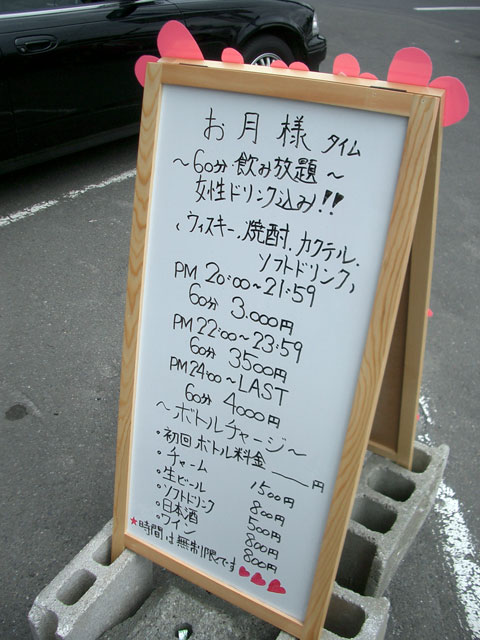 お月様 タイム
~60分 飲み放題~
女性ドリンク込み!!
(ウィスキー、焼酎、カクテル、
ソフトドリンク)
PM 20:00~21:59
60分 3.000円
PM 22:00~23:59
60分 3500円
PM 24:00~LAST
60分 4000円
~ボトルチャージ~
・初回ボトル料金 ____円
・チャーム 1500円
・生ビール 800円
・ソフトドリンク 500円
・日本酒 800円
・ワイン 800円
★時間は無制限です